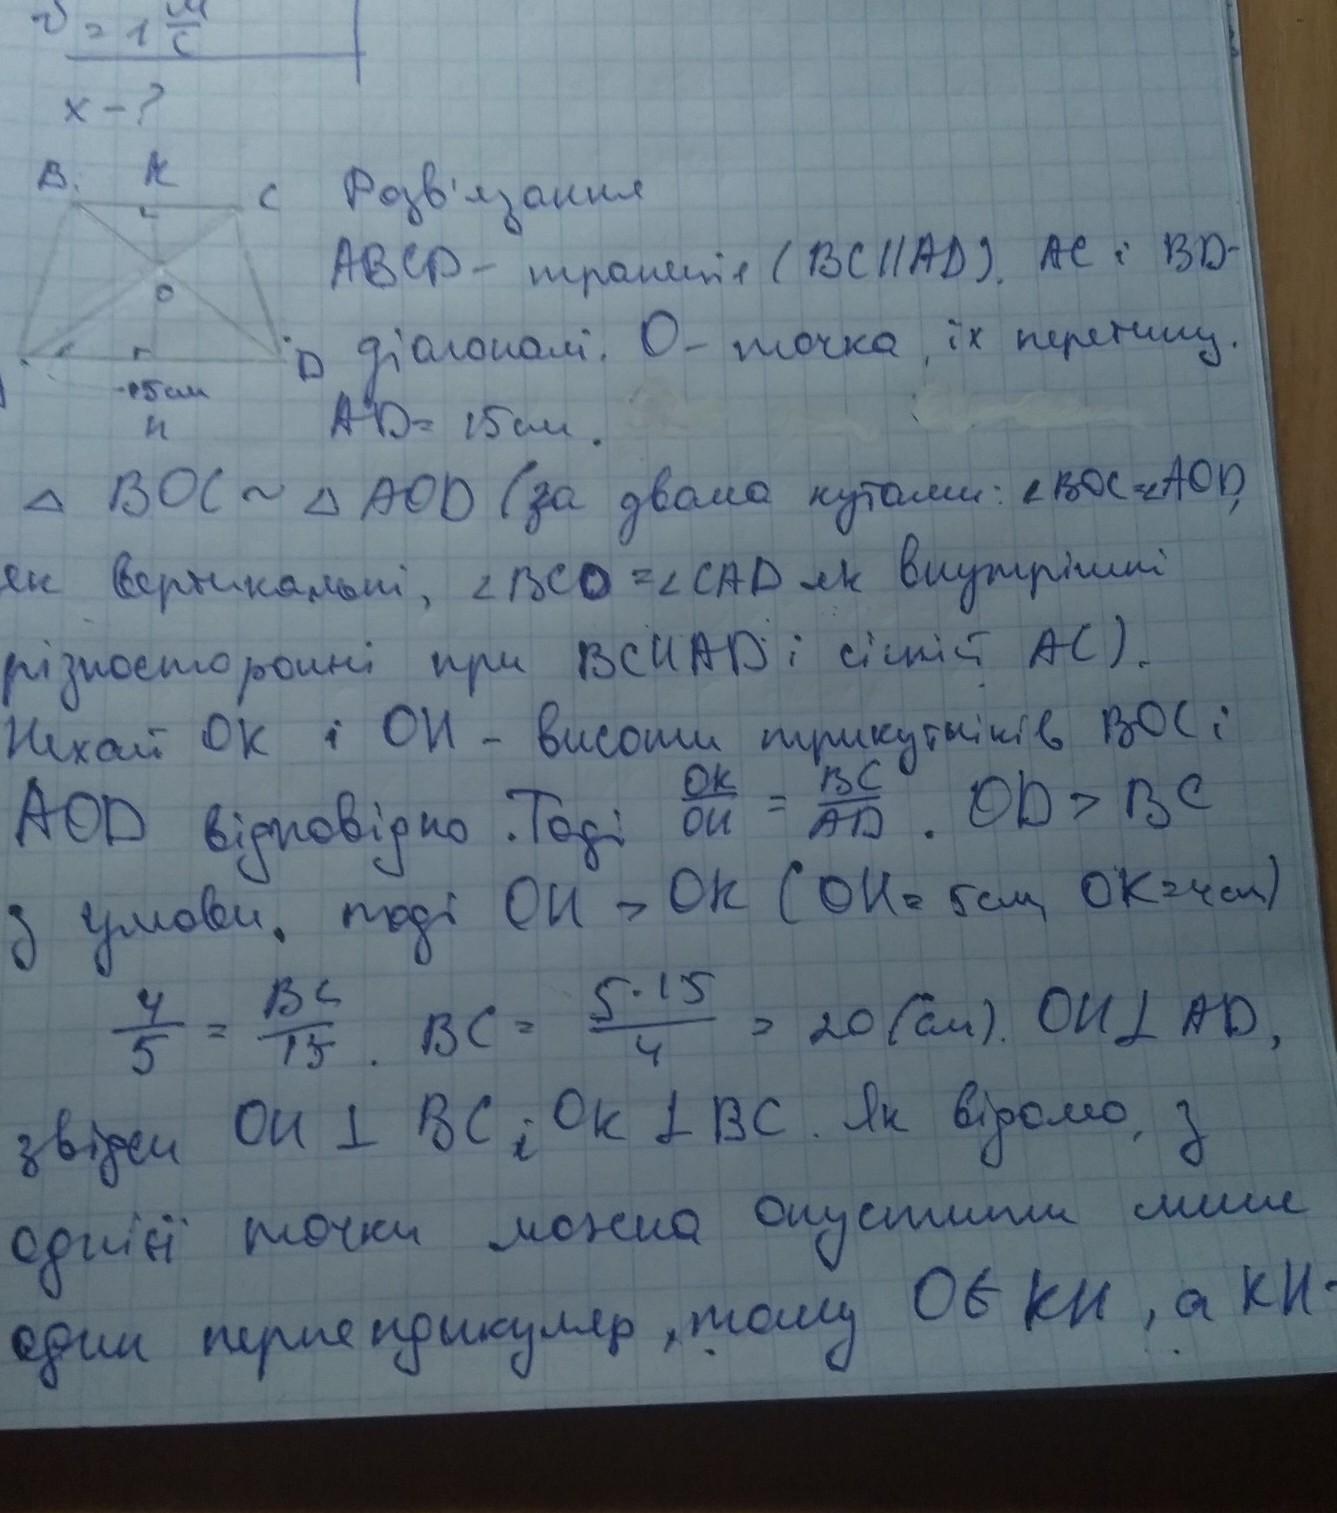 v = 1 м/с
x - ?
B K C
O
D
15 см
H
Розв'язання
ABCD - трапеція (BC||AD). AC і BD -
діагоналі. O - точка їх перетину.
AD = 15 см.
△ BOC ~ △ AOD (за двома кутами: ∠BOC = ∠AOD,
як вертикальні, ∠BCO = ∠CAD як внутрішні
різносторонні при BC||AD і січній AC).
Нехай OK і OH - висоти трикутників BOC і
AOD відповідно. Тоді OK/OH = BC/AD. OD > BC
з умови, тоді OH > OK (OH = 5 см, OK = 4 см)
4/5 = BC/15. BC = 5·15/4 = 20 (см). OH ⊥ AD,
звідси OH ⊥ BC і OK ⊥ BC. Як відомо, з
однієї точки можна опустити лише
один перпендикуляр, тому O ∈ KH, а KH -